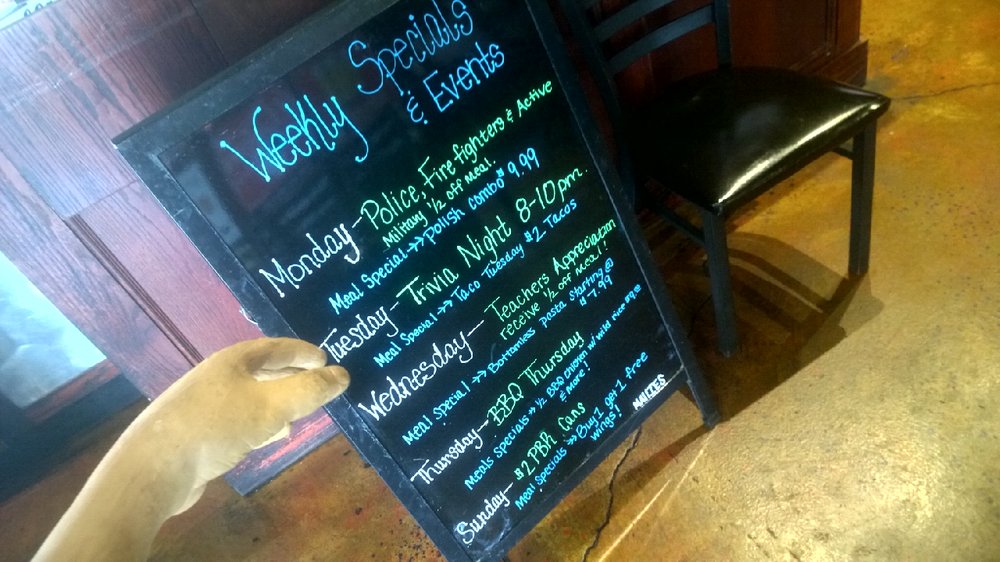 Weekly Specials
& Events
Monday - Police, Firefighters & Active
Military 1/2 off Meal.
Meal Special ->> Polish combo $9.99
Tuesday - Trivia Night 8-10pm.
Meal Special -> Taco Tuesday $2 Tacos
Wednesday - Teachers Appreciation
receive 1/2 off Meal!
Meal Special ->> Bottomless pasta starting @
$7.99
Thursday - BBQ Thursday
Meals Specials -> 1/2 BBQ Chicken w/ wild rice
& More!
Sunday - $2 PBR Cans
Meal Specials -> Buy 1 get 1 free
wings!